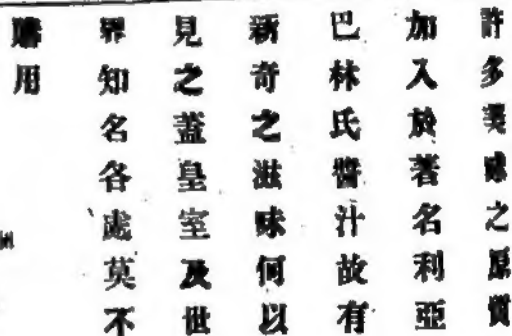 許多美味之原質
加入於著名利亞
巴林氏醬汁故有
新奇之滋味何以
見之蓋皇室及世
界知名各處莫不
購用